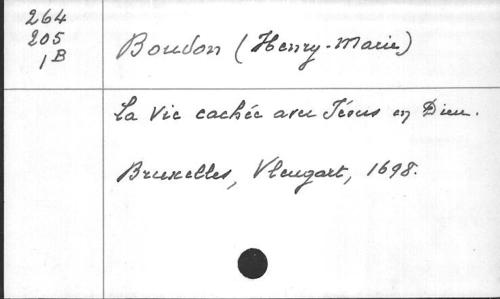 264
205
1B
Boudon (Henry-Marie)
La Vie cachée avec Jésus en Dieu.
Bruxelles, Vleugart, 1698.